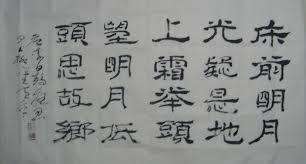 床前明月
光疑是地
上霜舉頭
望明月低
頭思故鄉
唐李白